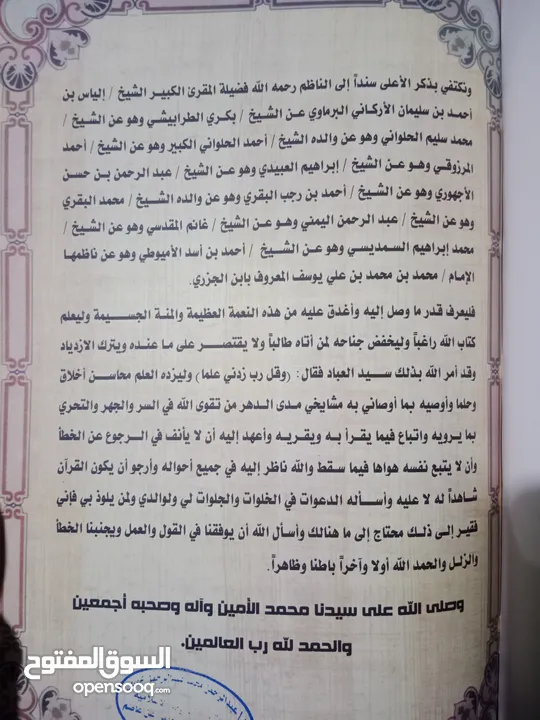 ونكتفي بذكر الأعلى سنداً إلى الناظم رحمه الله فضيلة المقرئ الكبير الشيخ / إلياس بن
أحمد بن سليمان الأركاني البرماوي عن الشيخ / بكري الطرابيشي وهو عن الشيخ /
محمد سليم الحلواني وهو عن والده الشيخ / أحمد الحلواني الكبير وهو عن الشيخ / أحمد
المرزوقي وهو عن الشيخ / إبراهيم العبيدي وهو عن الشيخ / عبد الرحمن بن حسن
الأجهوري وهو عن الشيخ / أحمد بن رجب البقري وهو عن والده الشيخ / محمد البقري
وهو عن الشيخ / عبد الرحمن اليمني وهو عن الشيخ / غانم المقدسي وهو عن الشيخ /
محمد إبراهيم السمديسي وهو عن الشيخ / أحمد بن أسد الأميوطي وهو عن ناظمها
الإمام / محمد بن محمد بن علي يوسف المعروف بابن الجزري.
فليعرف قدر ما وصل إليه وأغدق عليه من هذه النعمة العظيمة والمنة الجسيمة وليعلم
كتاب الله راغباً وليخفض جناحه لمن أتاه طالباً ولا يقتصر على ما عنده ويترك الازدياد
وقد أمر الله بذلك سيد العباد فقال: (وقل رب زدني علما) وليزده العلم محاسن أخلاق
وحلما وأوصيه بما أوصاني به مشايخي مدى الدهر من تقوى الله في السر والجهر والتحري
بما يرويه واتباع فيما يقرأ به ويقريه وأعهد إليه أن لا يأنف في الرجوع عن الخطأ
وأن لا يتبع نفسه هواها فيما سقط والله ناظر إليه في جميع أحواله وأرجو أن يكون القرآن
شاهداً له لا عليه وأسأله الدعوات في الخلوات والجلوات لي ولوالدي ولمن يلوذ بي فإني
فقير إلى ذلك محتاج إلى ما هنالك وأسأل الله أن يوفقنا في القول والعمل ويجنبنا الخطأ
والزلل والحمد الله أولا وآخراً باطنا وظاهراً.
وصلى الله على سيدنا محمد الأمين وآله وصحبه أجمعين
والحمد لله رب العالمين.
السوق المفتوح
opensooq.com